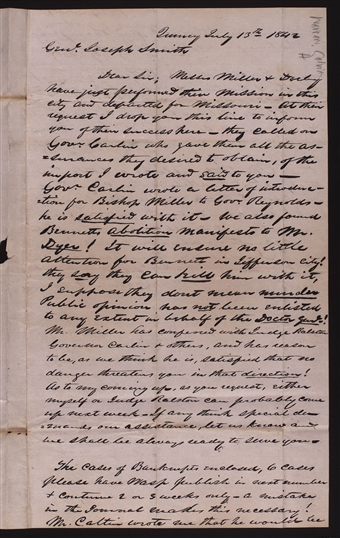 Quincy July 13th 1842
Genl. Joseph Smith
Dear Sir; Messrs Miller & Derby
have just performed their Mission in this
city and departed for Missouri – At their
request I drop you this line to inform
you of their success here – they called on
Govr Carlin who gave them all the as-
surances they desired to obtain, of the
import I wrote and said to you –
Govr Carlin wrote a letter of introduc-
tion for Bishop Miller to Govr Reynolds –
he is satisfied with it – We also found
Bennetts abolition manifesto to Mr.
Dyer! It will ensure no little
attention for Bennett in Jefferson City!
they say they can kill him with it,
I suppose they dont mean murder
Public opinion has not been enlisted
to any extent in behalf of the Doctor Genl!
Mr. Miller has conferred with Judge Ralston
Governor Carlin & others, and has reason
to be, as we think he is, satisfied that no
danger threatens you in that direction!
As to my coming up, as you request, either
myself or Judge Ralston can probably come
up next week – If any think special de-
mands our assistance, let us know and
we shall be always ready to serve you –
The cases of Bankrupts enclosed, 6 cases
please have Wasp publish in next number
& continue 2 or 3 weeks only – a mistake
in the Journal makes this necessary!
Mr. Catlin wrote me that he would be